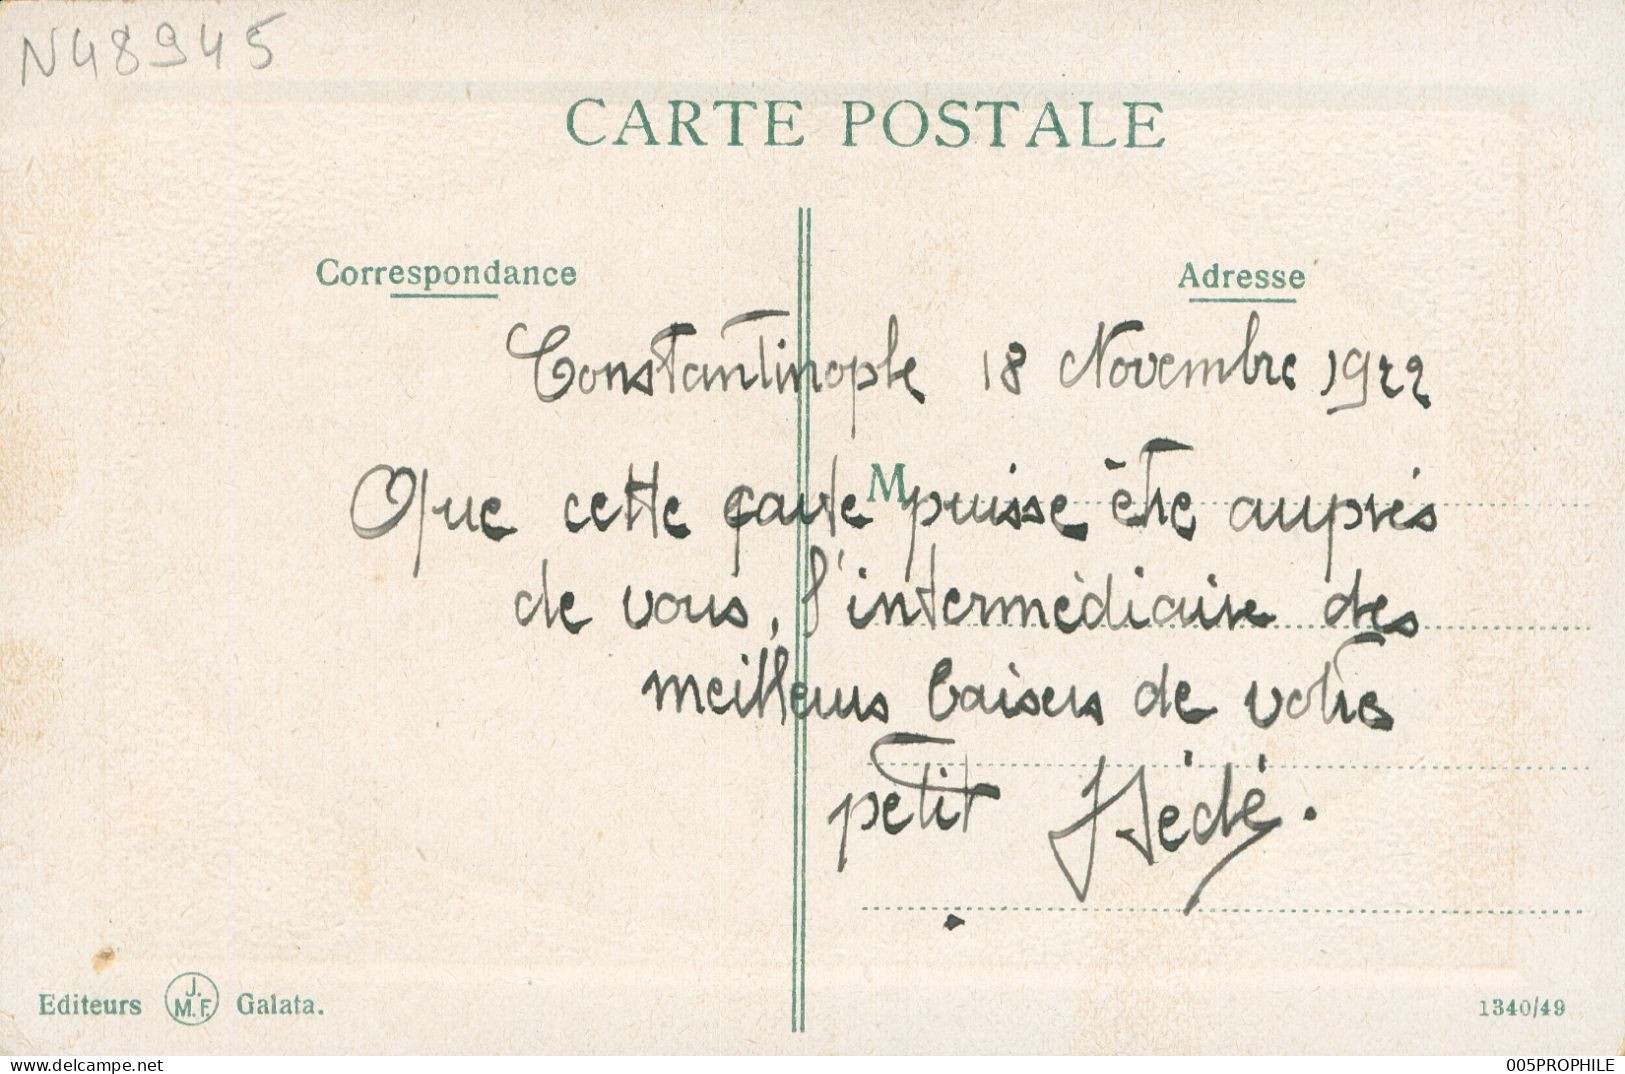 N48945
CARTE POSTALE
Correspondance
Adresse
Constantinople 18 Novembre 1922
Que cette carte puisse être auprès
M
de vous, l'intermédiaire des
meilleurs baisers de votre
petit Dédé.
Editeurs J. M. F. Galata.
1340/49
delcampe.net
005PROPHILE